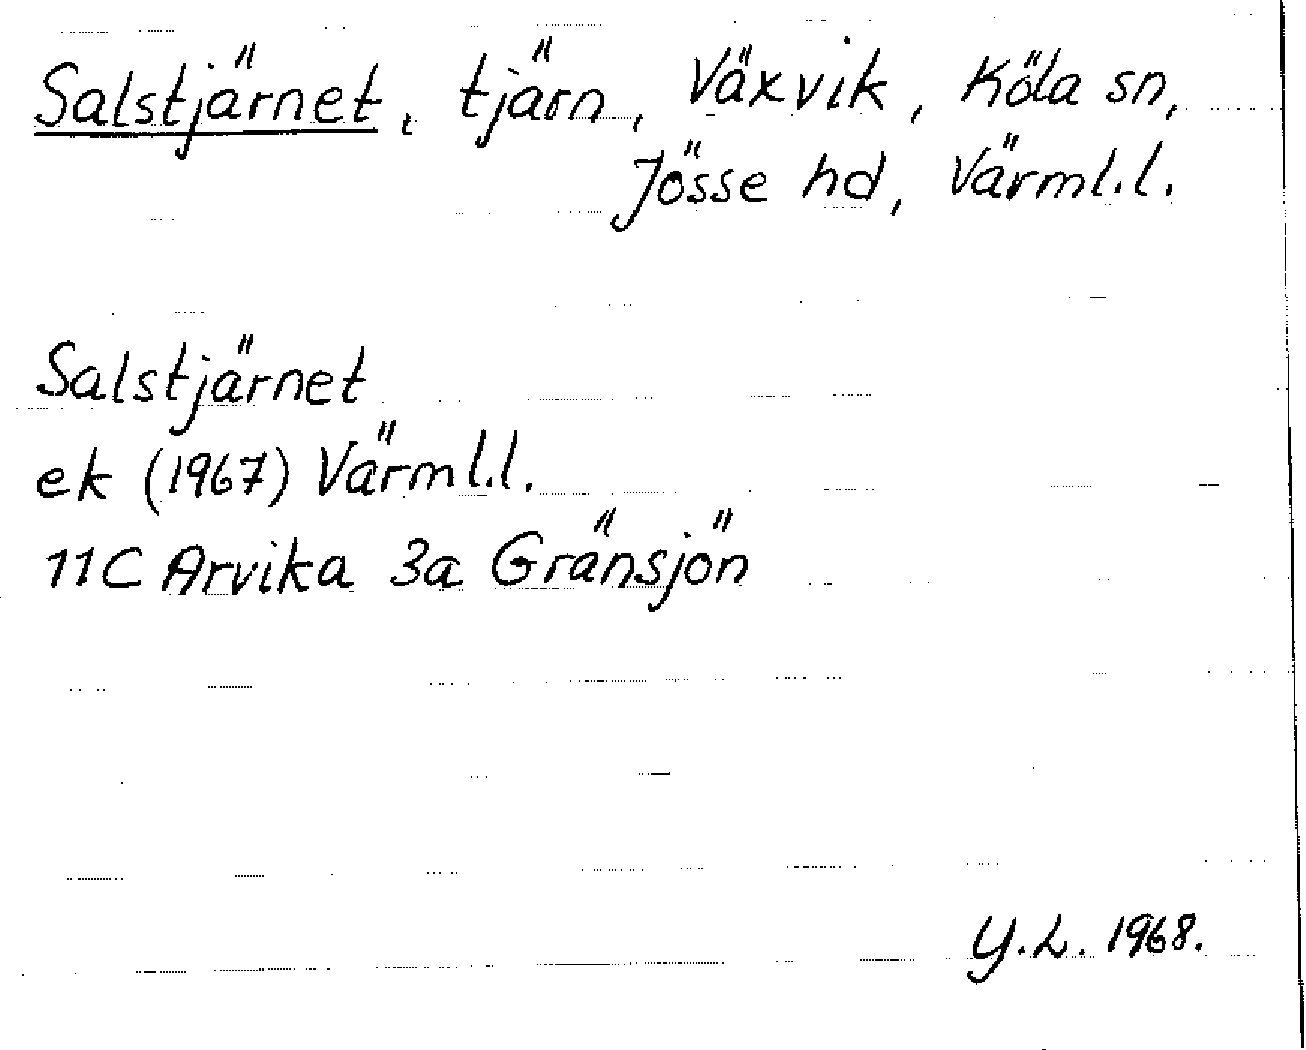 Salstjärnet, tjärn, Växvik, Köla sn,
Jösse hd, Värml.l.
Salstjärnet
ek (1967) Värml.l.
11C Arvika 3a Gränsjön
Y.L. 1968.